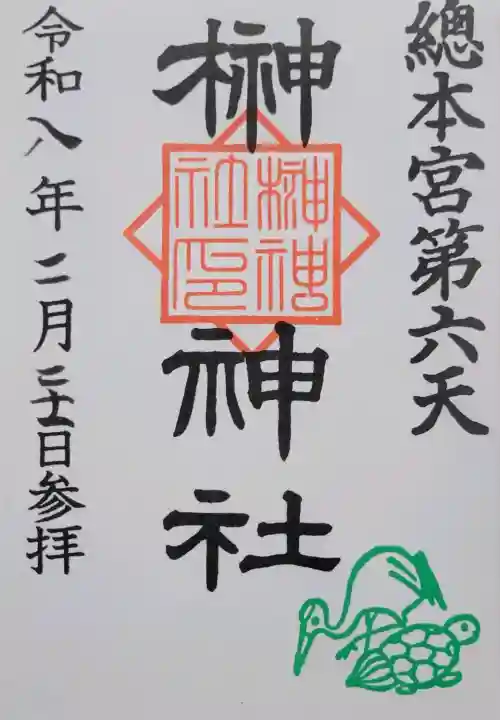 總本宮第六天
榊神社
榊神社印
令和八年二月二十日参拝